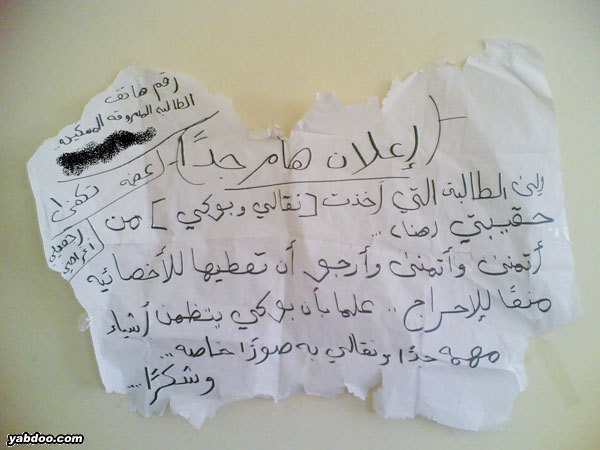 رقم هاتف
الطالبة المسروقة المسكينة..
(إعلان هام جدًا)
إلى الطالبة التي أخذت [نقالي وبوكي] من
حقيبتي رهناء...
أتمنى وأتمنى وأرجو أن تعطيها للأخصائيه
منعًا للإحراج .. علما بأن بوكي يتظمن أشياء
مهمه جدًا ونقالي به صورًا خاصه...
وشكرًا...
yabdoo.com